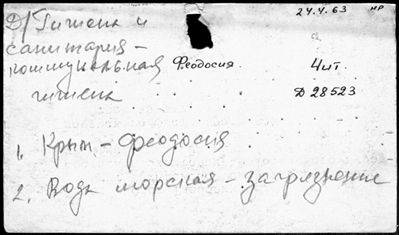 24.4.63 НР
Д/Гигиена и
санитария –
коммунальная Феодосия. Чит.
гигиена Д 28523
1. Крым – Феодосия
2. Вода морская – загрязнение